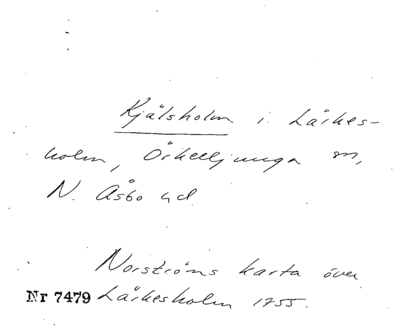 Kjälsholm i Lärkes-
holm, Örkelljunga sn,
N. Åsbo hd.
Norströms karta över
Nr 7479 Lärkesholm 1755.